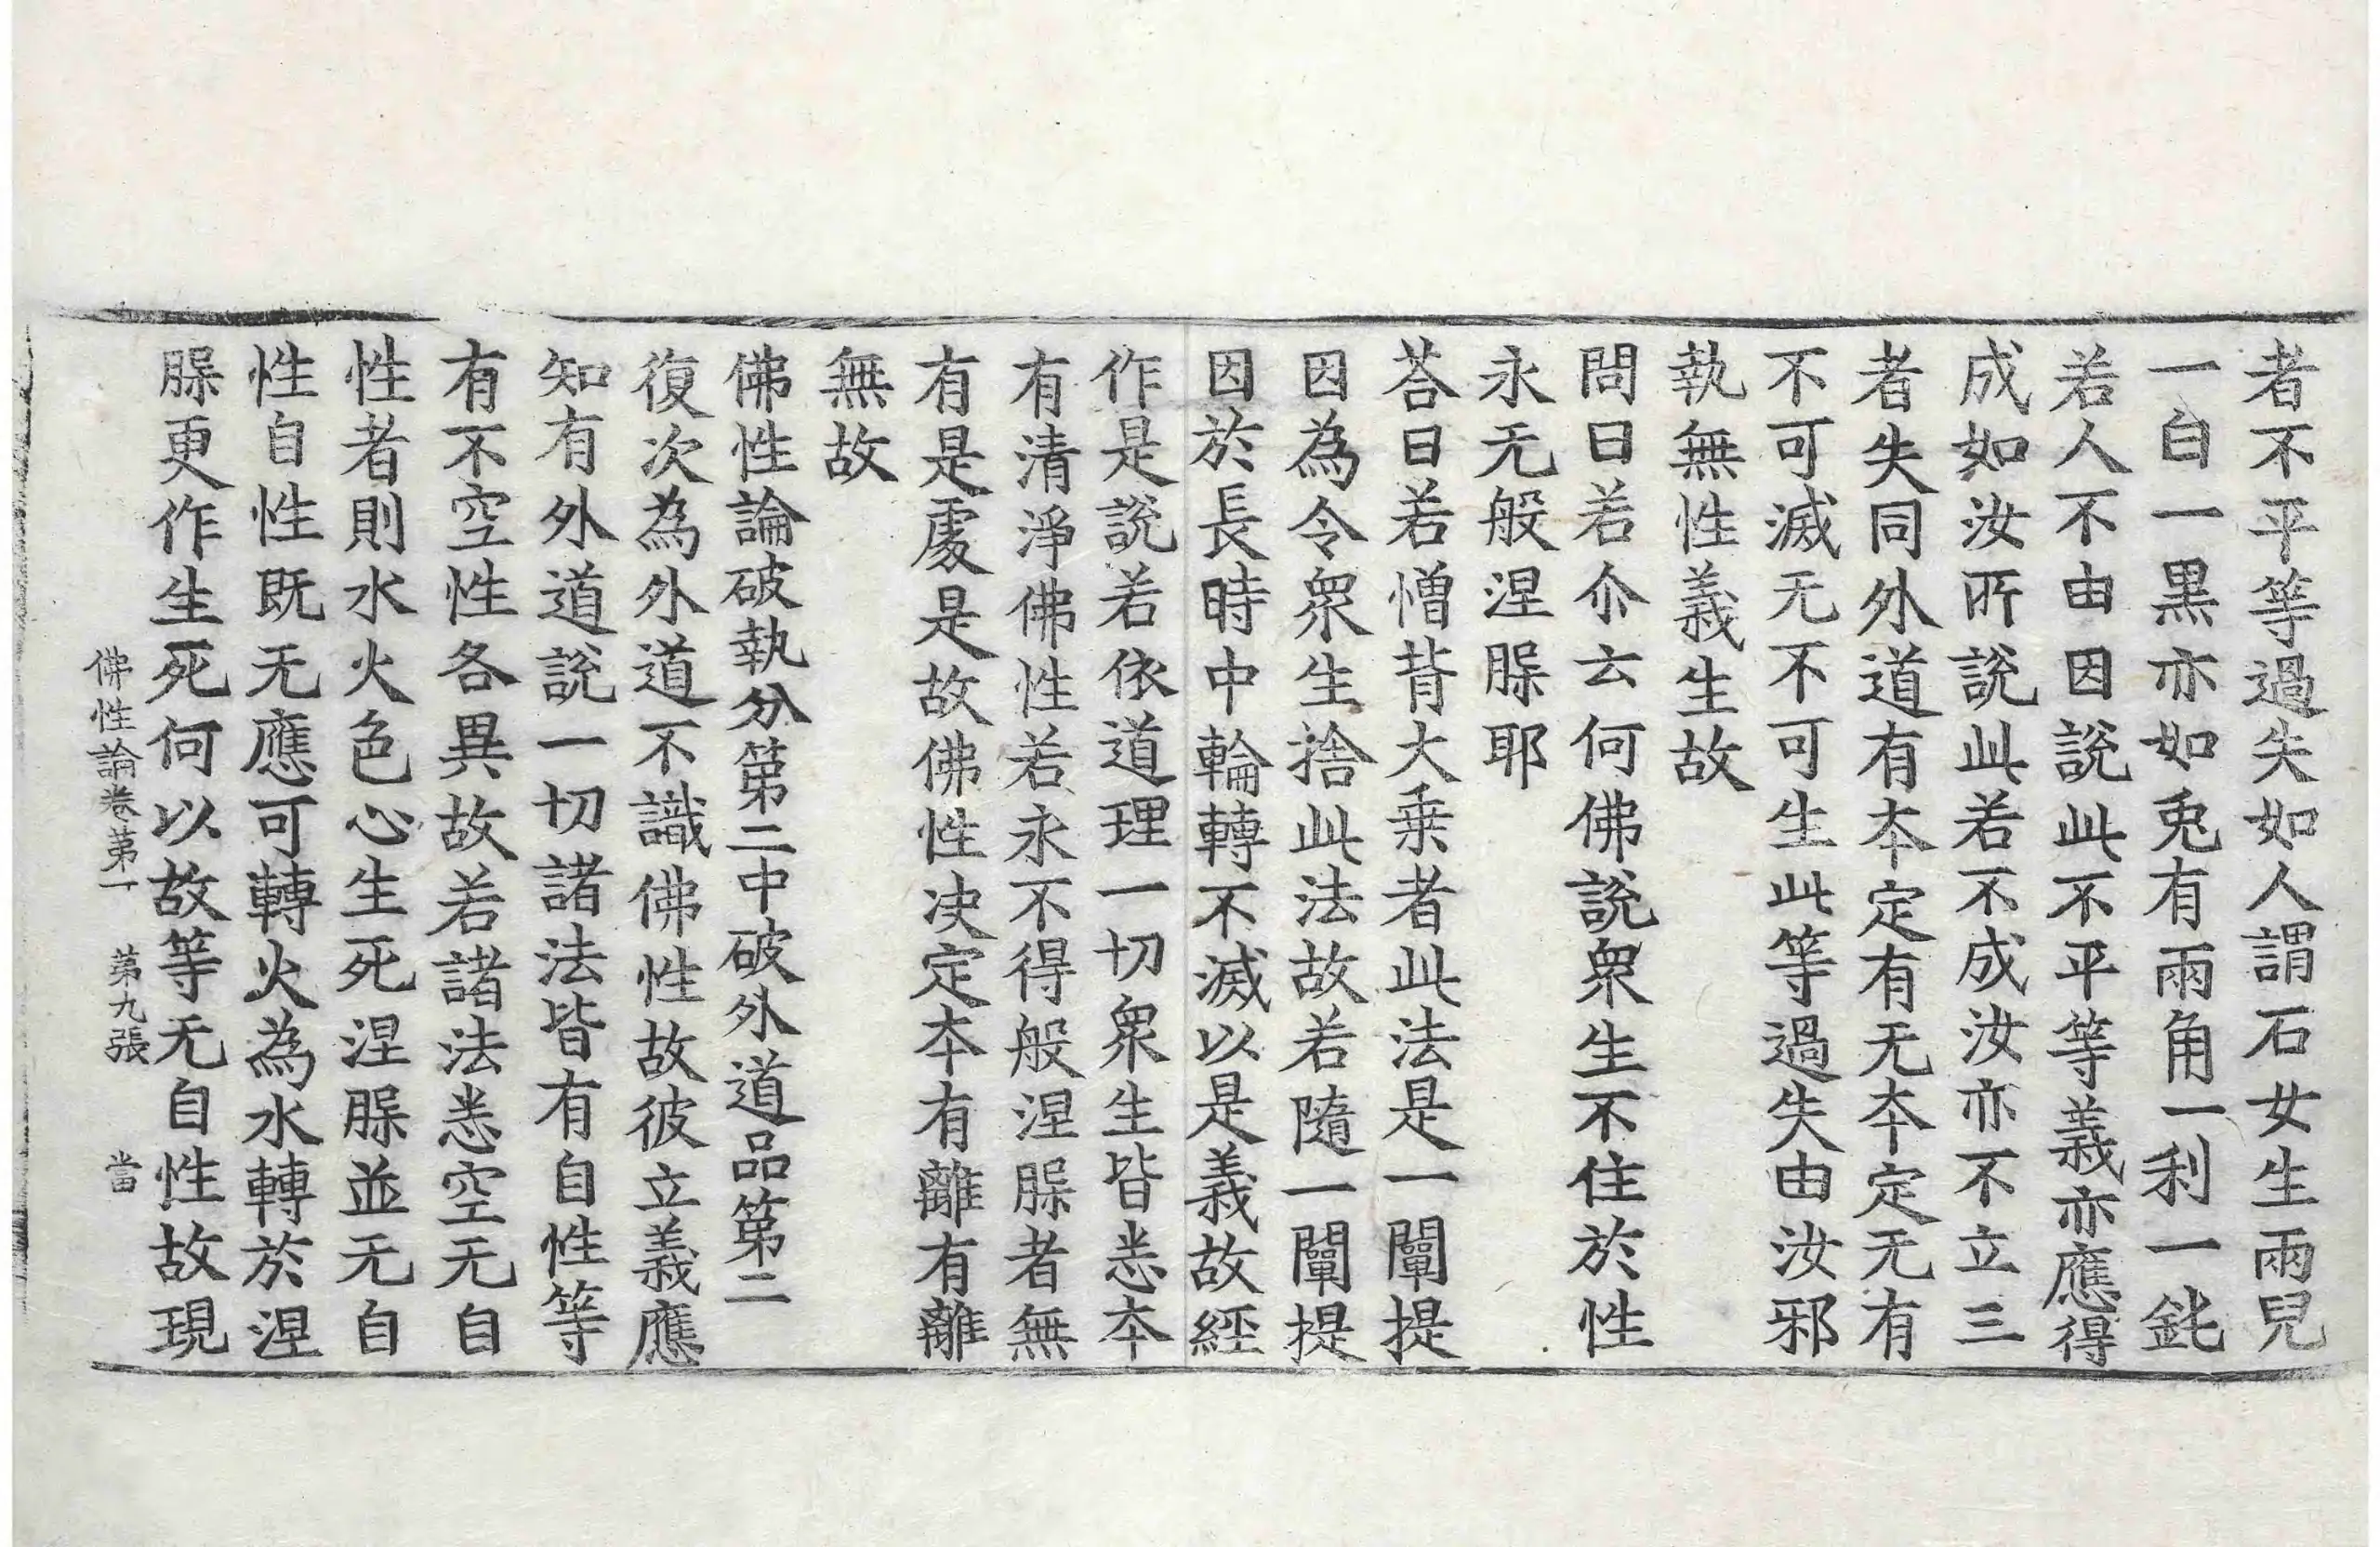 者不平等過失如人謂石女生兩兒
一白一黒亦如兎有兩角一利一鈋
若人不由因說此不平等義亦應得
成如汝所說此若不成汝亦不立三
者失同外道有本定有无本定无有
不可滅无不可生此等過失由汝邪
執無性義生故
問曰若尒云何佛說衆生不住於性
永无般涅槃耶
荅曰若憎背大乗者此法是一闡提
因為令衆生捨此法故若隨一闡提
因於長時中輪轉不滅以是義故經
作是說若依道理一切衆生皆悉本
有清淨佛性若永不得般涅槃者無
有是處是故佛性决定本有離有離
無故
佛性論破執分第二中破外道品第二
復次為外道不識佛性故彼立義應
知有外道說一切諸法皆有自性等
有不空性各異故若諸法悉空无自
性者則水火色心生死涅槃並无自
性自性既无應可轉火為水轉於涅
槃更作生死何以故等无自性故現
佛性論卷第一 第九張 當